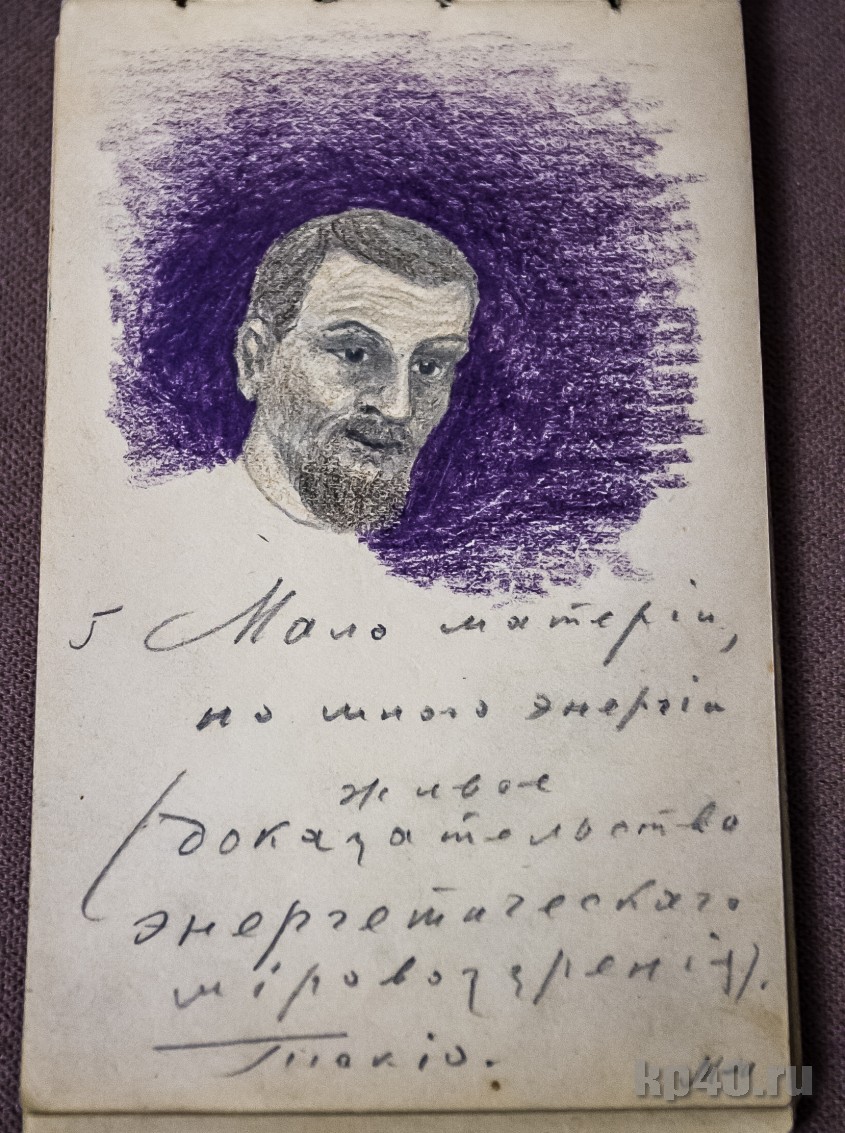 5 Мало матеріи,
но много энергіи
живое
(доказательство
энергетическаго
міровоззренія).
Токіо.
kp40.ru